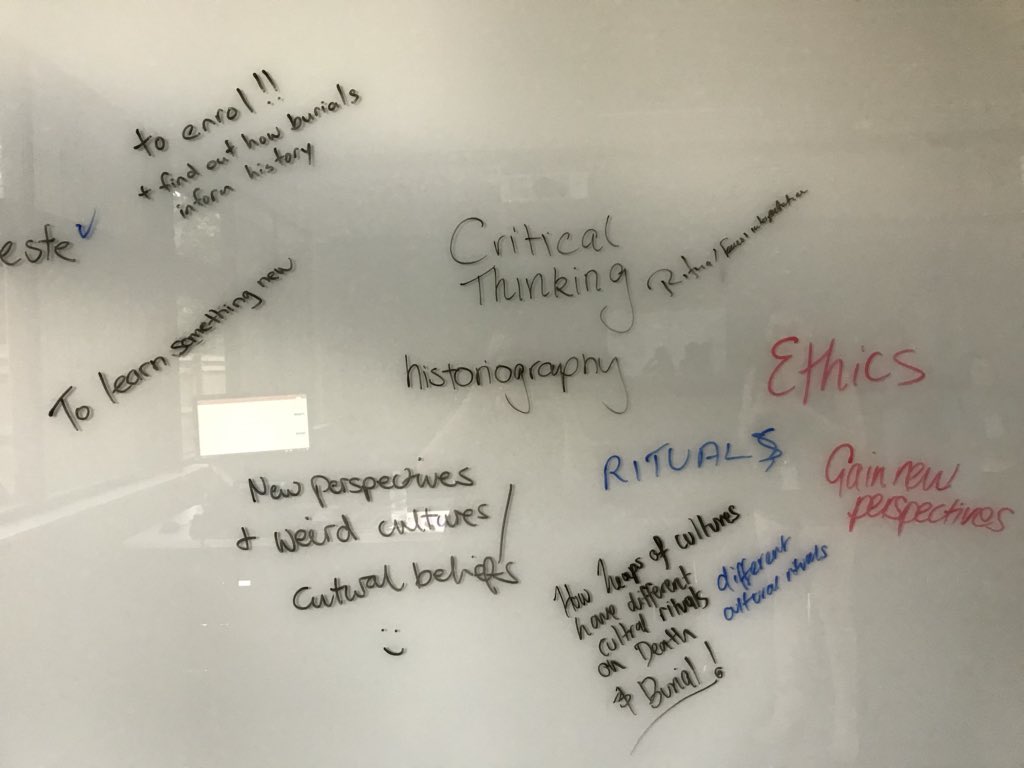 to enrol!!
+ find out how burials
inform history
este
To learn something new
Critical
Thinking
Ritual
historiography
Ethics
RITUALS
Gain new
perspectives
New perspectives
+ weird cultures /
Cultural beliefs
How heaps of cultures
have different
cultral rituals
on Death
& Burial!
different
cultural rituals